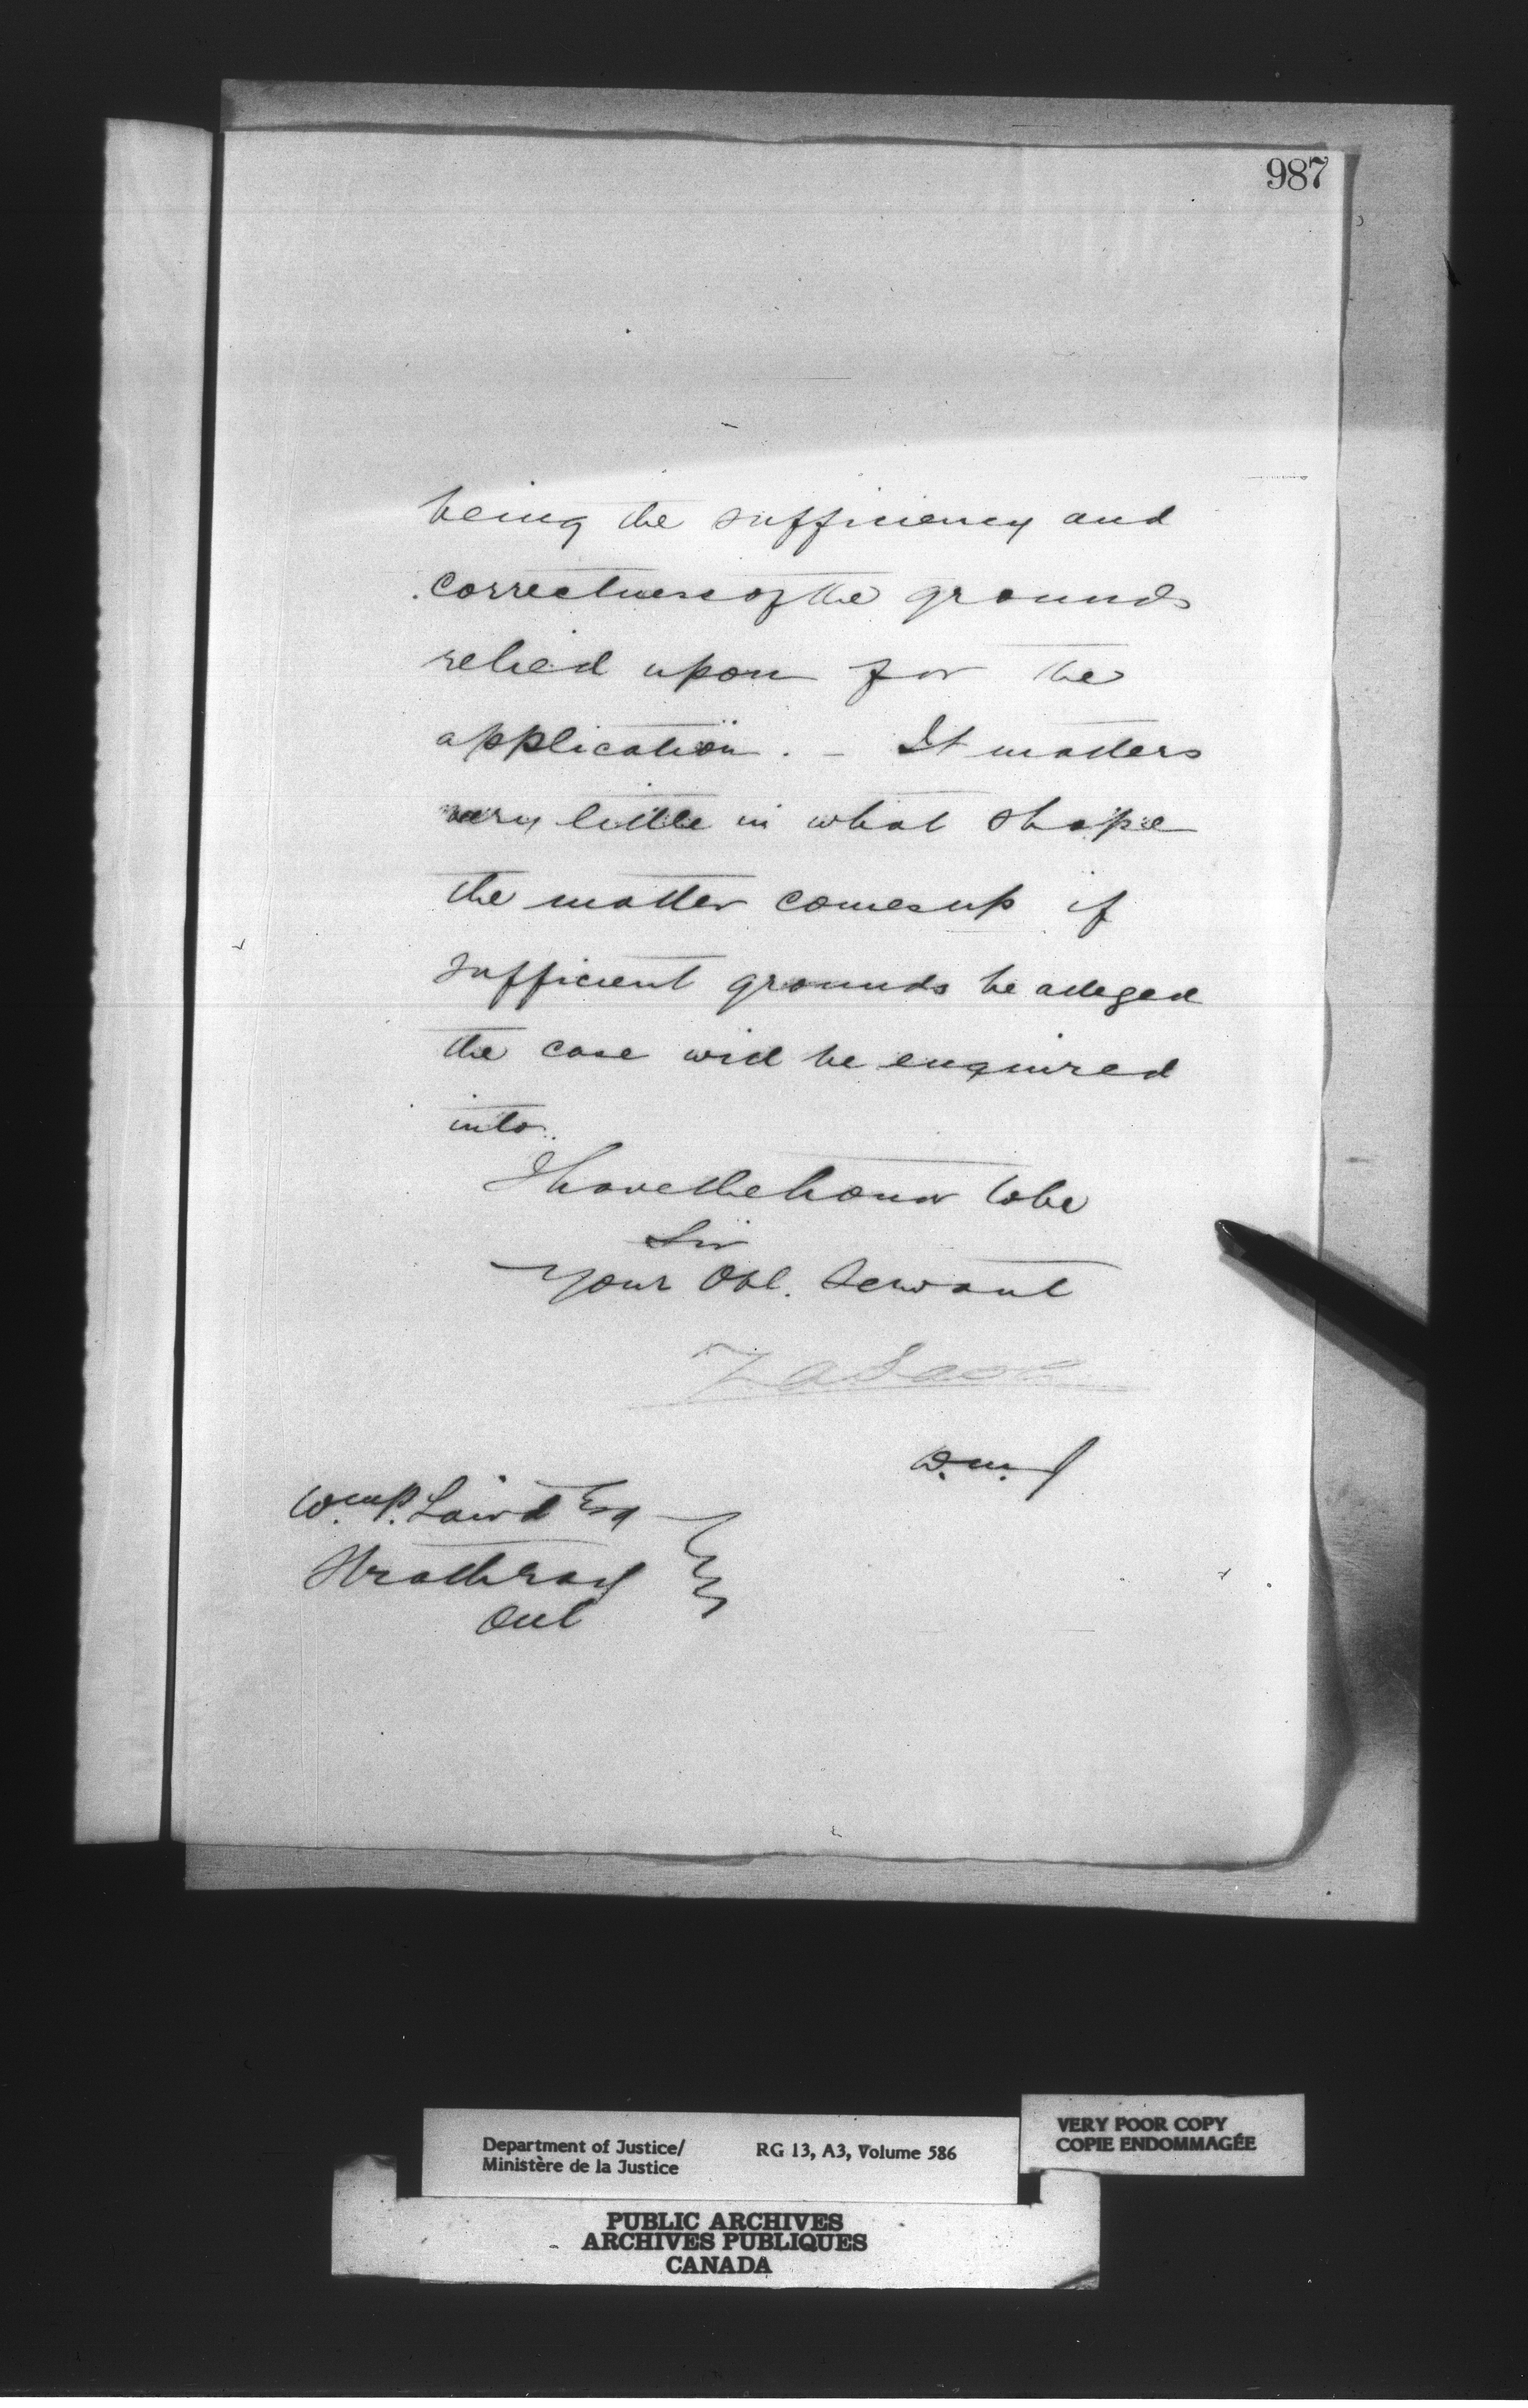 987
being the sufficiency and
correctness of the grounds
relied upon for the
application. - It matters
very little in what shape
the matter comes up if
sufficient grounds be alleged
the case will be enquired
into.
I have the honor to be
Sir
Your Obt. Servant
D.M.J
Wm P. Laird Esq
Strathroy
Ont
Department of Justice/
Ministère de la Justice
RG 13, A3, Volume 586
VERY POOR COPY
COPIE ENDOMMAGÉE
PUBLIC ARCHIVES
ARCHIVES PUBLIQUES
CANADA